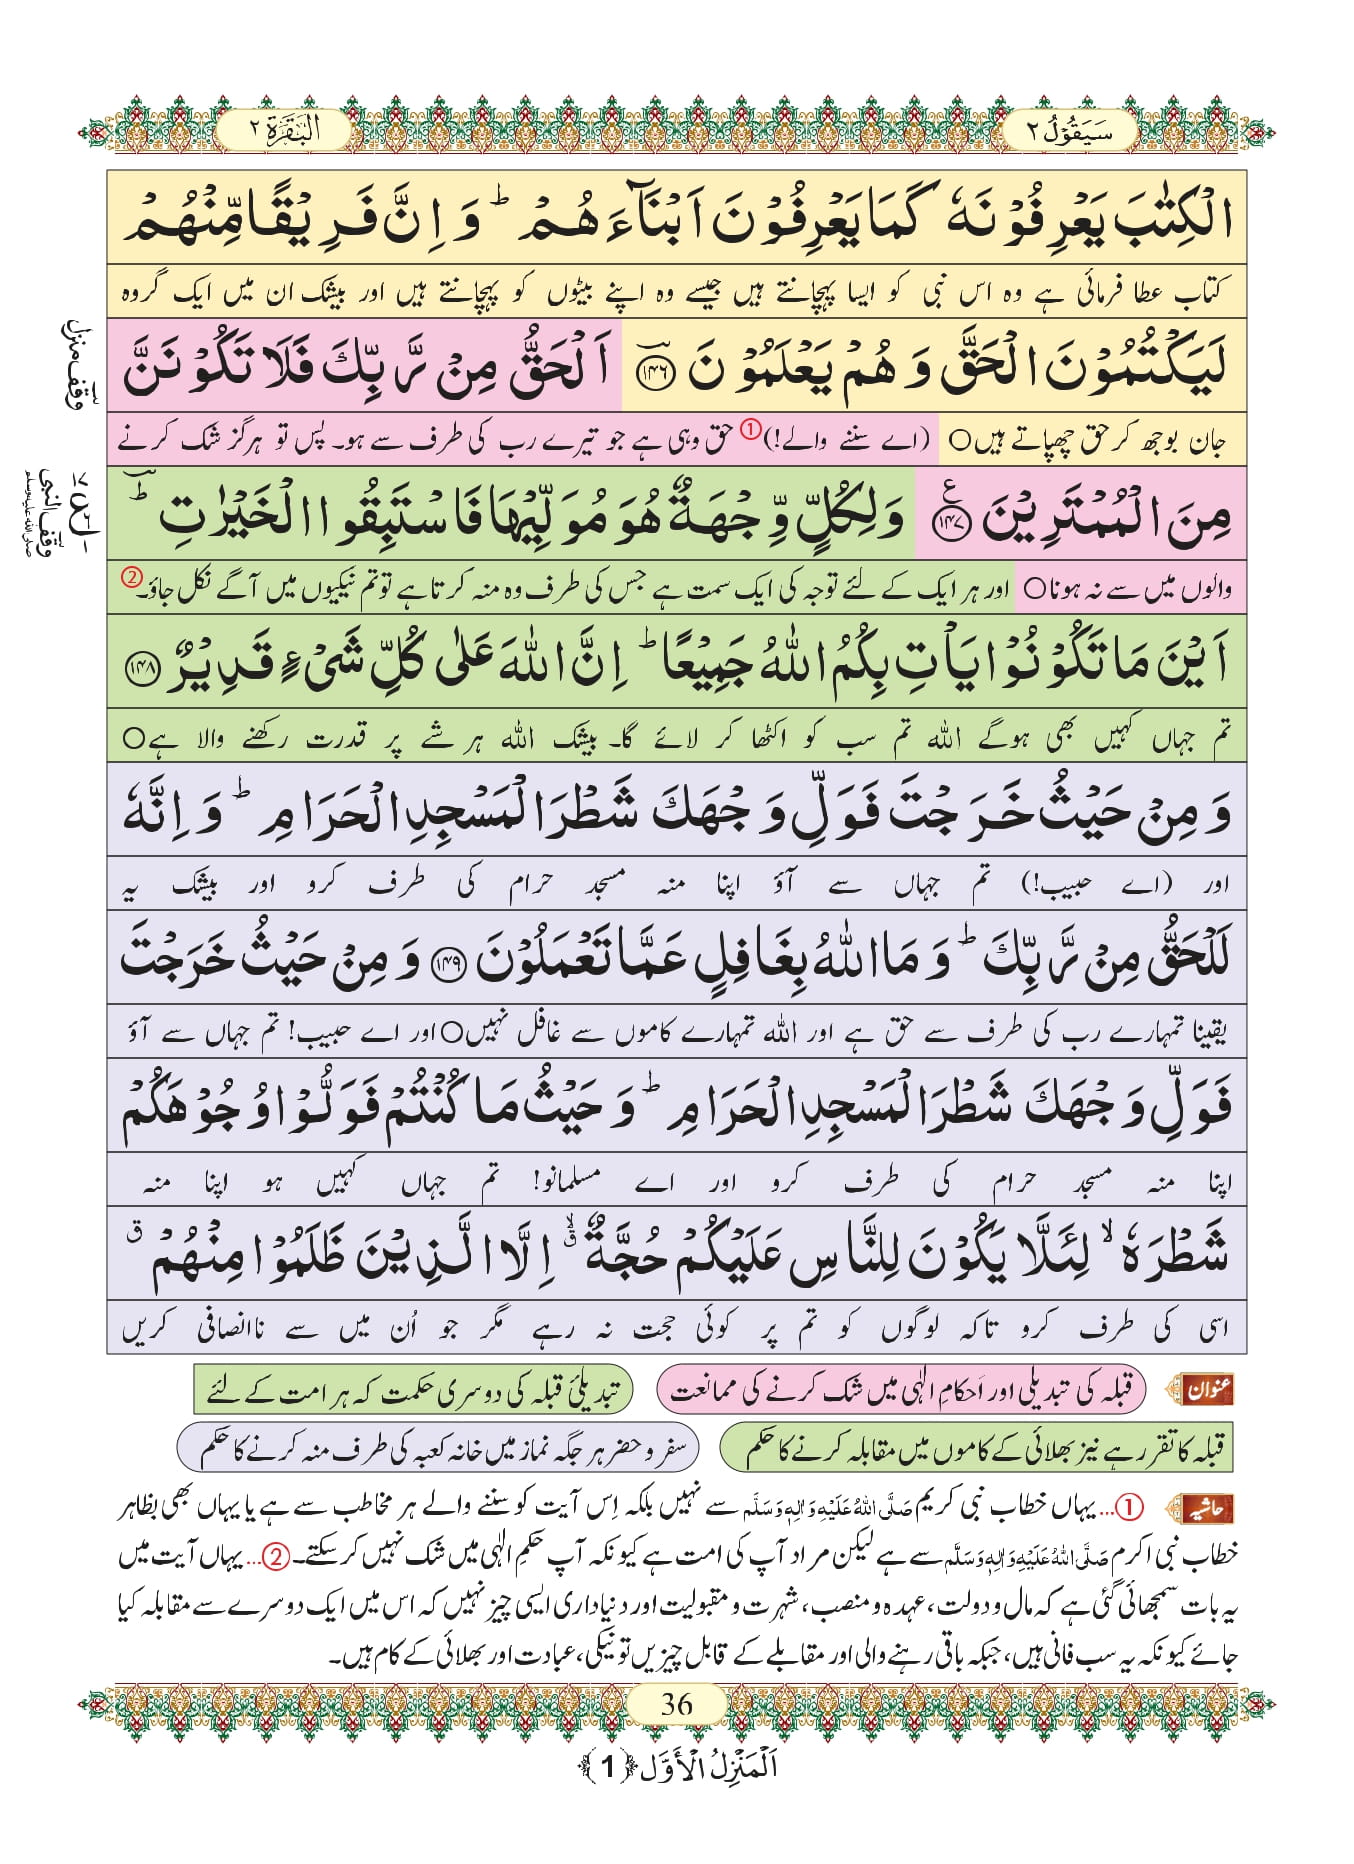 سَيَقُوْلُ ٢
الْبَقَرَة ٢
الْكِتٰبَ يَعْرِفُوْنَهٗ كَمَا يَعْرِفُوْنَ اَبْنَآءَهُمْ ؕ وَ اِنَّ فَرِيْقًا مِّنْهُمْ
کتاب عطا فرمائی ہے وہ اس نبی کو ایسا پہچانتے ہیں جیسے وہ اپنے بیٹوں کو پہچانتے ہیں اور بیشک ان میں ایک گروہ
لَيَكْتُمُوْنَ الْحَقَّ وَ هُمْ يَعْلَمُوْنَ ﴿۱۴۶﴾ اَلْحَقُّ مِنْ رَّبِّكَ فَلَا تَكُوْنَنَّ
وقف منزل
جان بوجھ کر حق چھپاتے ہیں○ (اے سننے والے!)① حق وہی ہے جو تیرے رب کی طرف سے ہو۔ پس تو ہرگز شک کرنے
مِنَ الْمُمْتَرِيْنَ ﴿۱۴۷﴾ ع وَ لِكُلٍّ وِّجْهَةٌ هُوَ مُوَلِّيْهَا فَاسْتَبِقُوا الْخَيْرٰتِ ؕ
وقف النبی صلی اللہ علیہ وسلم
والوں میں سے نہ ہونا○ اور ہر ایک کے لئے توجہ کی ایک سمت ہے جس کی طرف وہ منہ کرتا ہے تو تم نیکیوں میں آگے نکل جاؤ۔②
اَيْنَ مَا تَكُوْنُوْا يَاْتِ بِكُمُ اللّٰهُ جَمِيْعًا ؕ اِنَّ اللّٰهَ عَلٰى كُلِّ شَیْءٍ قَدِيْرٌ ﴿۱۴۸﴾
تم جہاں کہیں بھی ہوگے اللہ تم سب کو اکٹھا کر لائے گا۔ بیشک اللہ ہر شے پر قدرت رکھنے والا ہے○
وَ مِنْ حَيْثُ خَرَجْتَ فَوَلِّ وَجْهَكَ شَطْرَ الْمَسْجِدِ الْحَرَامِ ؕ وَ اِنَّهٗ
اور (اے حبیب!) تم جہاں سے آؤ اپنا منہ مسجد حرام کی طرف کرو اور بیشک یہ
لَلْحَقُّ مِنْ رَّبِّكَ ؕ وَ مَا اللّٰهُ بِغَافِلٍ عَمَّا تَعْمَلُوْنَ ﴿۱۴۹﴾ وَ مِنْ حَيْثُ خَرَجْتَ
یقینا تمہارے رب کی طرف سے حق ہے اور اللہ تمہارے کاموں سے غافل نہیں○ اور اے حبیب! تم جہاں سے آؤ
فَوَلِّ وَجْهَكَ شَطْرَ الْمَسْجِدِ الْحَرَامِ ؕ وَ حَيْثُ مَا كُنْتُمْ فَوَلُّوْا وُجُوْهَكُمْ
اپنا منہ مسجد حرام کی طرف کرو اور اے مسلمانو! تم جہاں کہیں ہو اپنا منہ
شَطْرَهٗ ۙ لِئَلَّا يَكُوْنَ لِلنَّاسِ عَلَيْكُمْ حُجَّةٌ ۗۙ اِلَّا الَّذِيْنَ ظَلَمُوْا مِنْهُمْ ۗ
اسی کی طرف کرو تاکہ لوگوں کو تم پر کوئی حجت نہ رہے مگر جو اُن میں سے ناانصافی کریں
عنوان قبلہ کی تبدیلی اور اَحکامِ الٰہی میں شک کرنے کی ممانعت تبدیلیٔ قبلہ کی دوسری حکمت کہ ہر امت کے لئے
قبلہ کا تقرر ہے نیز بھلائی کے کاموں میں مقابلہ کرنے کا حکم سفر و حضر ہر جگہ نماز میں خانہ کعبہ کی طرف منہ کرنے کا حکم
حاشیہ ①...یہاں خطاب نبی کریم صَلَّى اللهُ عَلَيْهِ وَاٰلِهٖ وَسَلَّم سے نہیں بلکہ اِس آیت کو سننے والے ہر مخاطب سے ہے یا یہاں بھی بظاہر
خطاب نبی اکرم صَلَّى اللهُ عَلَيْهِ وَاٰلِهٖ وَسَلَّم سے ہے لیکن مراد آپ کی امت ہے کیونکہ آپ حکمِ الٰہی میں شک نہیں کرسکتے۔②...یہاں آیت میں
یہ بات سمجھائی گئی ہے کہ مال و دولت، عہدہ و منصب، شہرت و مقبولیت اور دنیاداری ایسی چیز نہیں کہ اس میں ایک دوسرے سے مقابلہ کیا
جائے کیونکہ یہ سب فانی ہیں، جبکہ باقی رہنے والی اور مقابلے کے قابل چیزیں تو نیکی، عبادت اور بھلائی کے کام ہیں۔
36
اَلْمَنْزِلُ الْأَوَّل ﴿1﴾